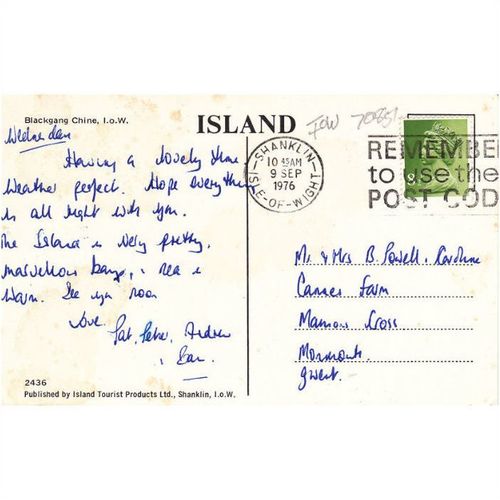 Blackgang Chine, I.o.W.
ISLAND
IOW 70851
SHANKLIN
10 45AM
9 SEP
1976
ISLE-OF-WIGHT
REMEMBE
to use the
POST COD
Wednesday
Having a lovely time
Weather perfect. Hope everything
is all right with you.
The Island is very pretty,
marvellous bays, & sea is
Warm. See you soon
Love
Pat, Peter, Andrew
&
Mr & Mrs B. Powell, Caroline
Farm
Cross
Monmouth
Gwent.
2436
Published by Island Tourist Products Ltd., Shanklin, I.o.W.